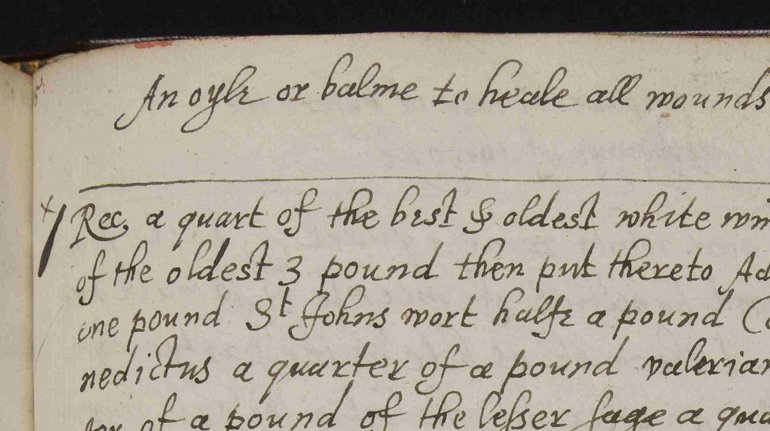 An oyle or balme to heale all wounds
Rec, a quart of the best & oldest white
of the oldest 3 pound then put thereto
one pound St Johns wort halfe a pound
nedictus a quarter of a pound
of a pound of the lesser sage a